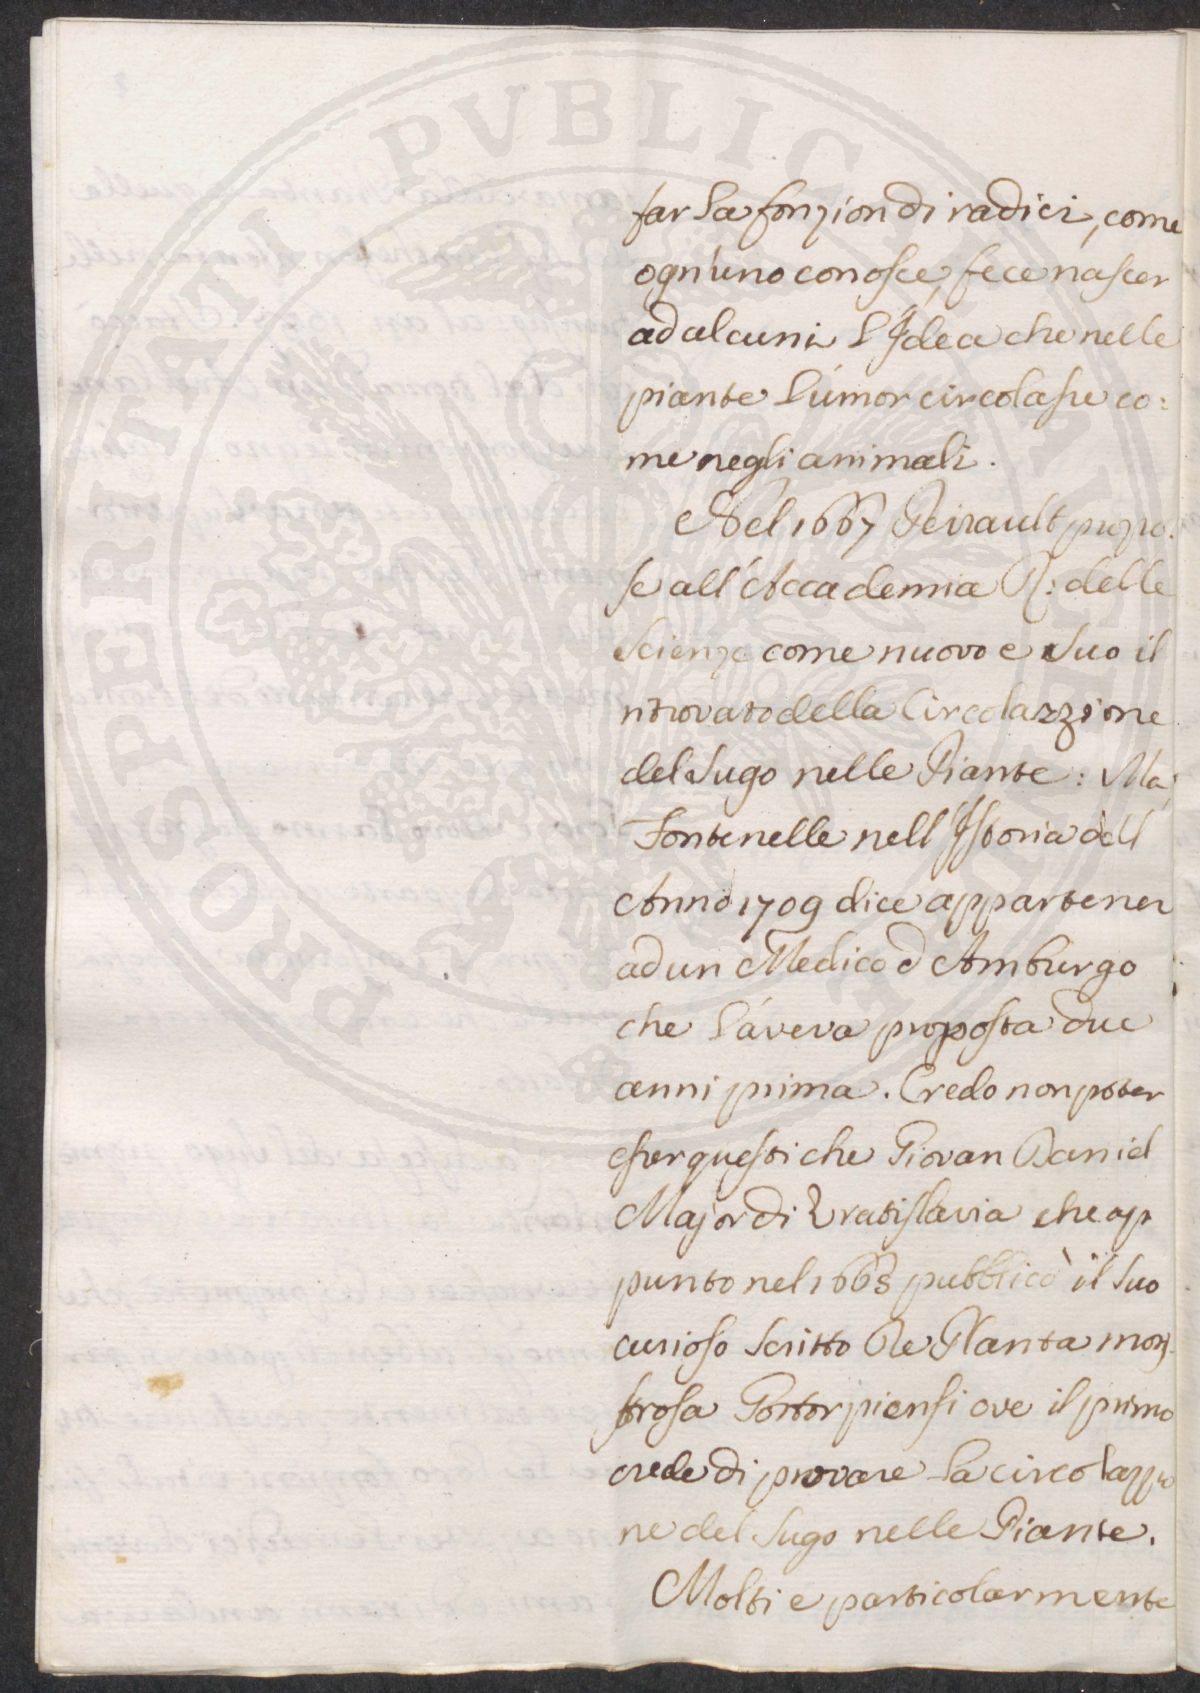 PROSPERITATI PVBLICAE AVGENDAE
far la fonzion di radici, come
ogn'uno conosce, fece nascer
ad alcuni l'Idea che nelle
piante l'umor circolasse co:
me negli animali.
Nel 1667 Peirault propo:
se all'Accademia R: delle
Scienze come nuovo e suo il
ritrovato della Circolazzione
del Sugo nelle Piante: Ma
Fontenelle nell'Istoria dell
Anno 1709 dice appartener
ad un Medico d'Amburgo
che l'aveva proposta due
anni prima. Credo non poter
esser questi che Giovan Daniel
Major di Vratislavia che ap
punto nel 1665 pubblicò il suo
curioso scritto De Planta mon:
strosa Gottorpiensi ove il primo
crede di provare la circolazzio
ne del Sugo nelle Piante.
Molti e particolarmente